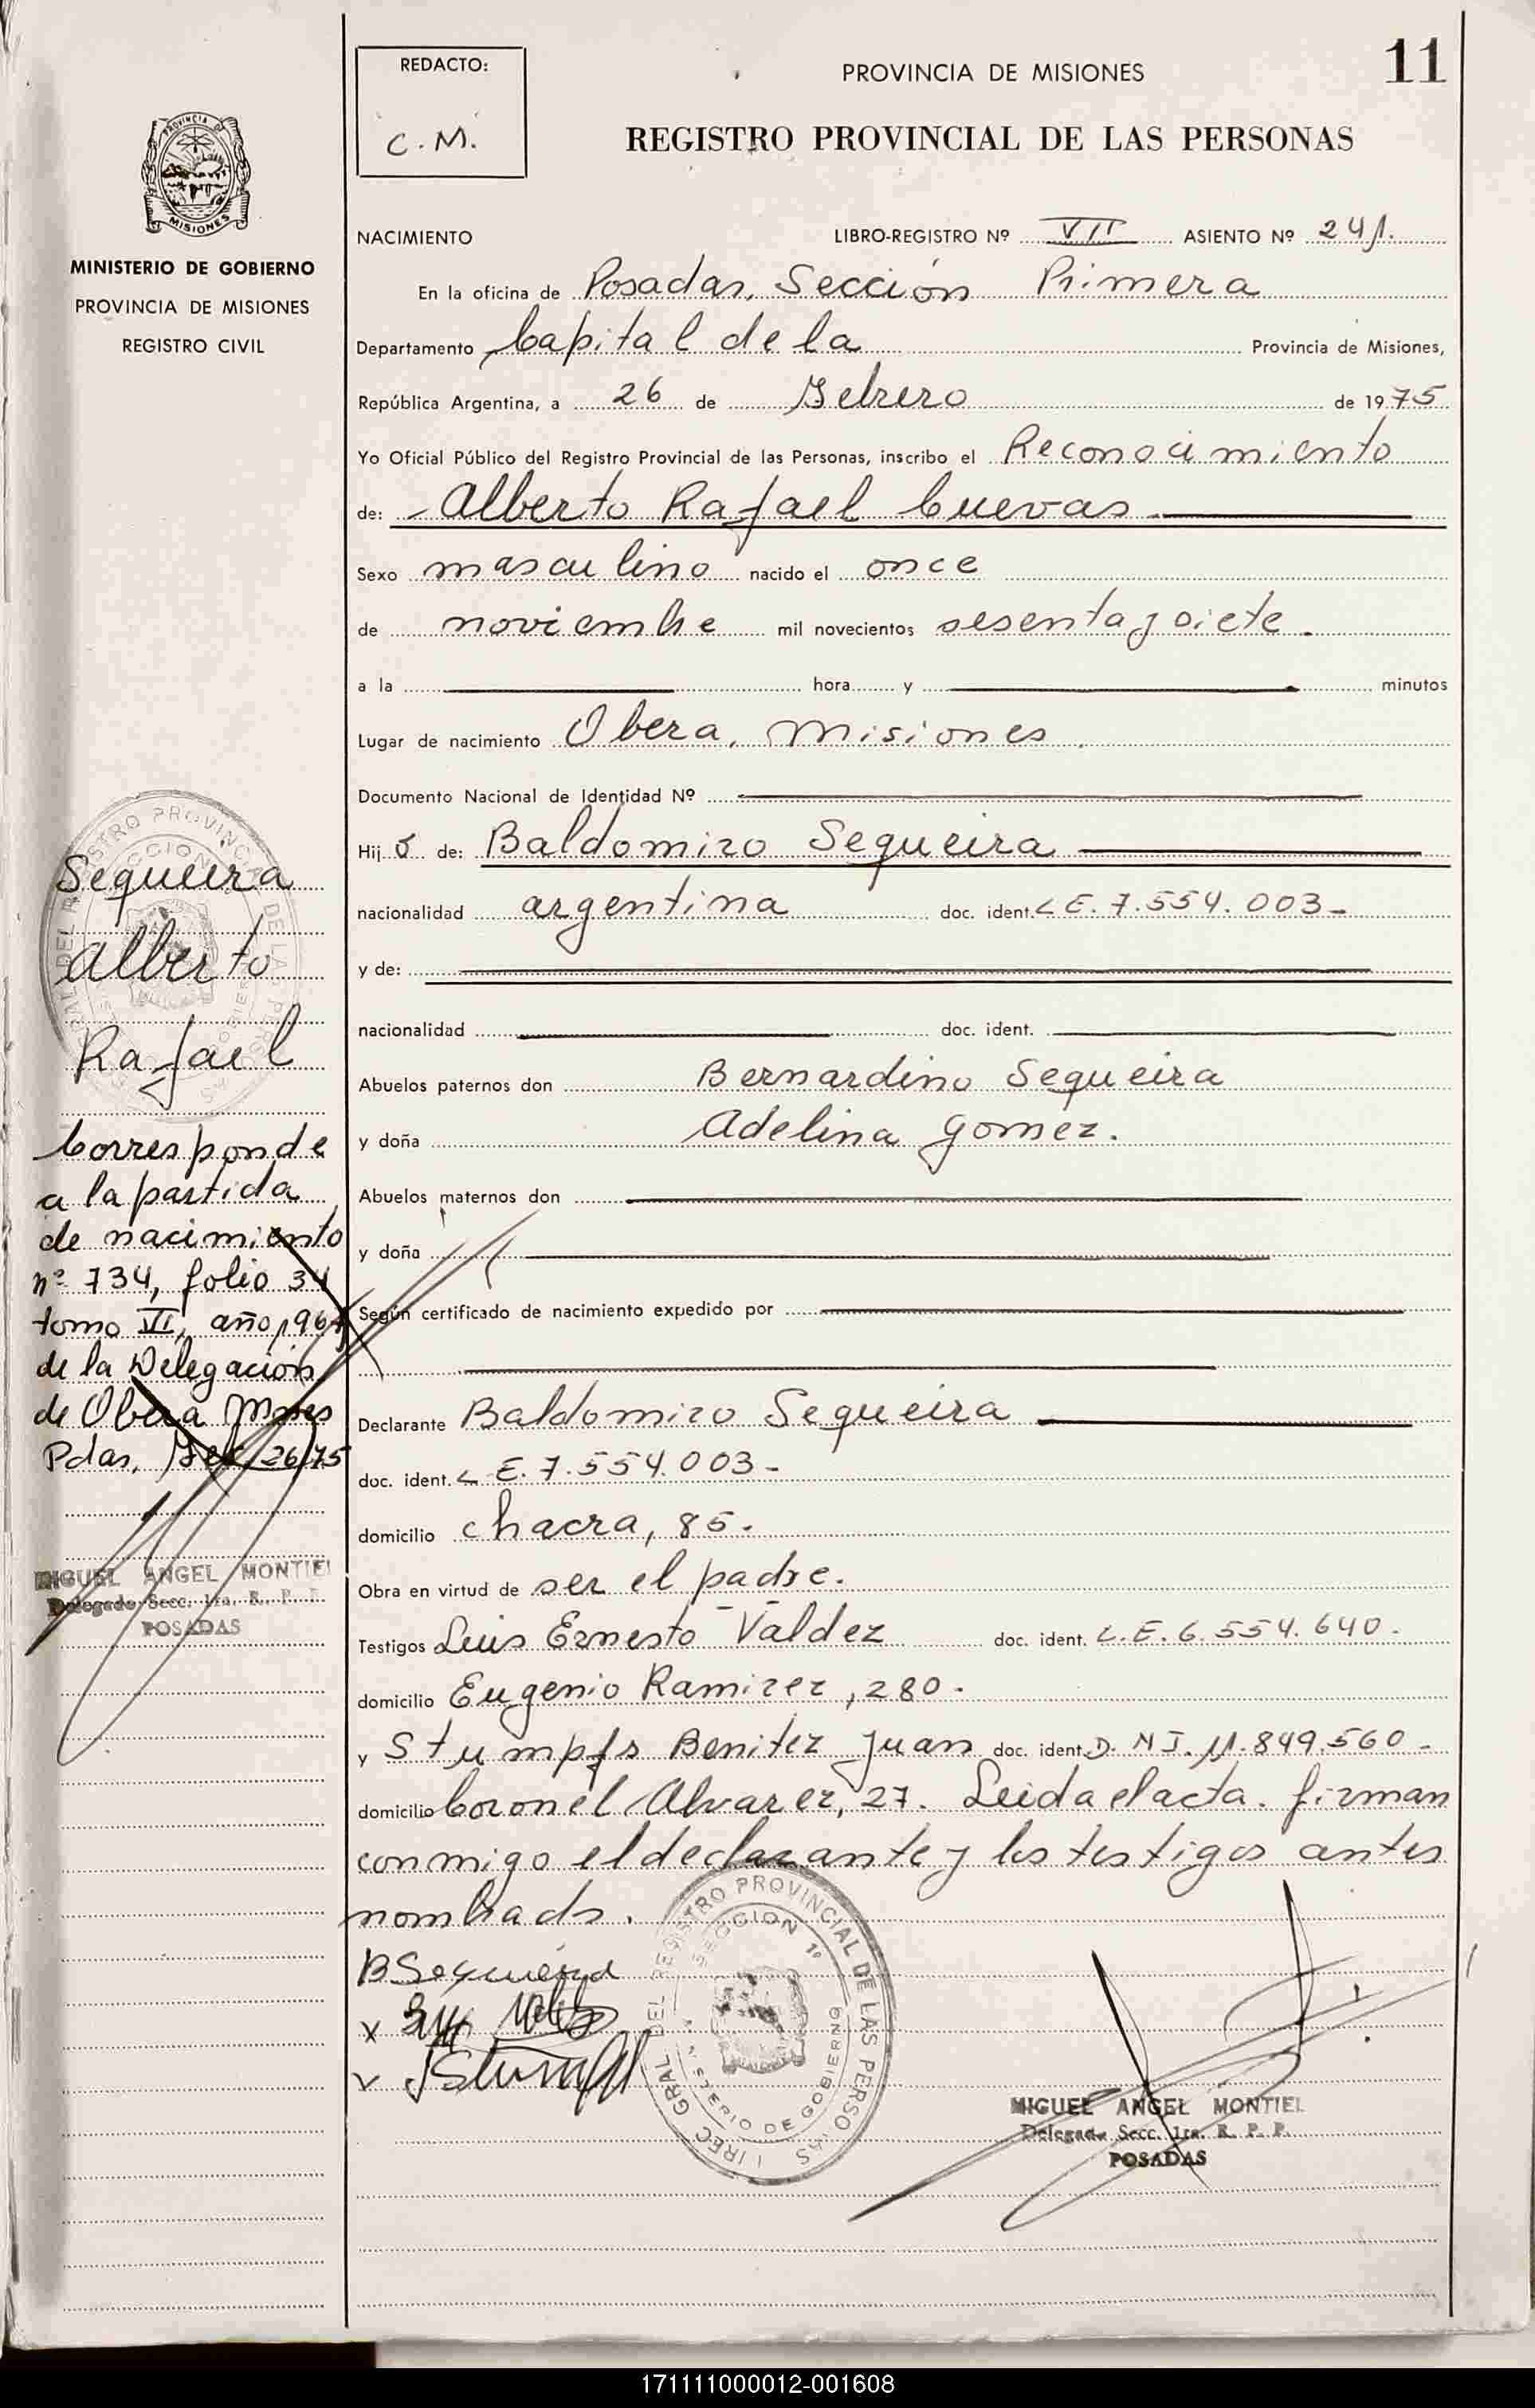 11
REDACTO:
C.M.
PROVINCIA DE MISIONES
REGISTRO PROVINCIAL DE LAS PERSONAS
MISIONES
MINISTERIO DE GOBIERNO
PROVINCIA DE MISIONES
REGISTRO CIVIL
NACIMIENTO LIBRO-REGISTRO Nº VII ASIENTO Nº 241.
En la oficina de Posadas, Sección Primera
Departamento Capital de la Provincia de Misiones,
República Argentina, a 26 de Febrero de 1975
Yo Oficial Público del Registro Provincial de las Personas, inscribo el Reconocimiento
de: - Alberto Rafael Cuevas
Sexo masculino nacido el once
de noviembre mil novecientos sesenta y siete.
a la hora y minutos
Lugar de nacimiento Obera, Misiones.
Documento Nacional de Identidad Nº
Hijo de: Baldomiro Sequeira
nacionalidad argentina doc. ident. L E. 7.554.003-
y de:
nacionalidad doc. ident.
Abuelos paternos don Bernardino Sequeira
y doña Adelina Gomez.
Abuelos maternos don
y doña
Según certificado de nacimiento expedido por
Declarante Baldomiro Sequeira
doc. ident. L E. 7.554.003-
domicilio chacra, 85.
Obra en virtud de ser el padre.
Testigos Luis Ernesto Valdez doc. ident. L.E. 6.554.640.
domicilio Eugenio Ramirez, 280.
y Stumpfs Benitez Juan doc. ident. D. N I. 11.849.560-
domicilio Coronel Alvarez, 27. Leida el acta. firman
conmigo el declarante y los testigos antes
nombrados.
BSequeira
Sequeira
Alberto
Rafael
Corresponde
a la partida
de nacimiento
nº 734, folio 34
tomo VI, año 1967
de la Delegación
de Obera Mnes
Pdas, Feb 26/75
MIGUEL ANGEL MONTIEL
Delegado Secc. 1ra. R. P. P.
POSADAS
DIREC GRAL DEL REGISTRO PROVINCIAL DE LAS PERSONAS
SECCION 1º
MINISTERIO DE GOBIERNO
MIGUEL ANGEL MONTIEL
Delegado Secc. 1ra. R. P. P.
POSADAS
171111000012-001608